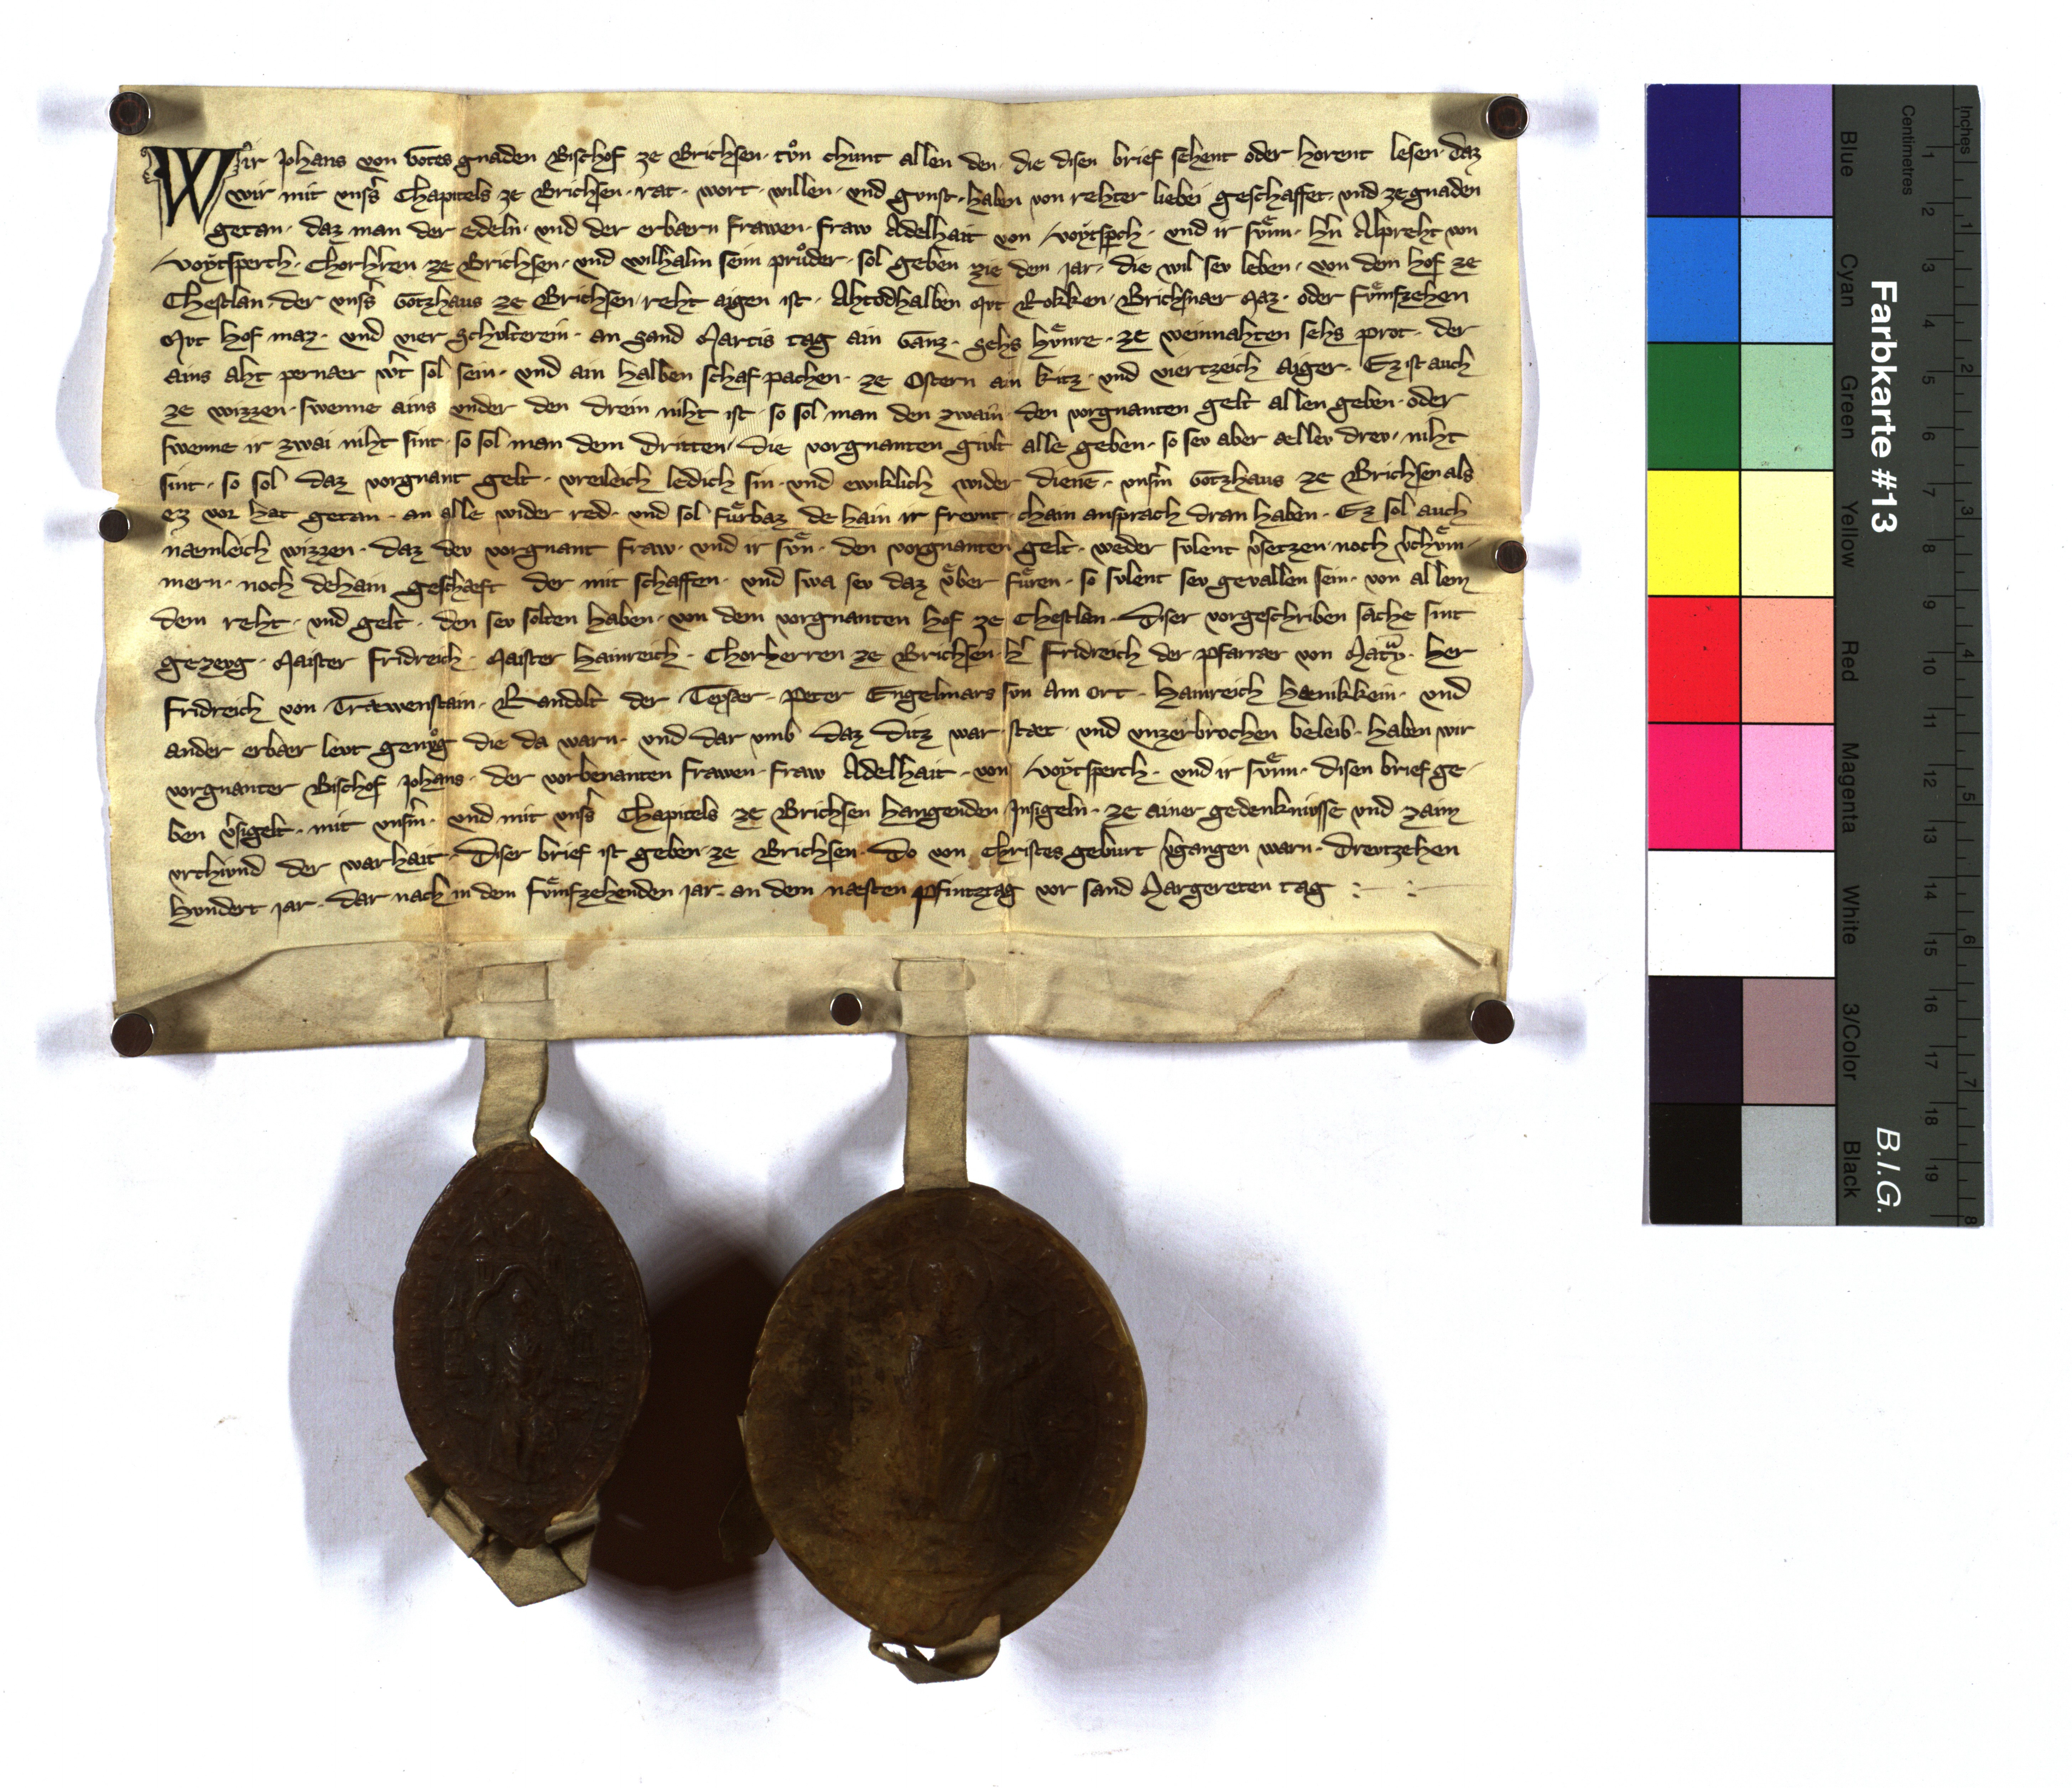 Wir Johans von Gotes gnaden Bischof ze Brichsen · tůn chunt allen den · die disen brief sehent oder horent lesen · daz
wir mit unsˢ Chapitels ze Brichsen · rat · wort · willen · und gunst · haben von rehter liebei geschaffet · und ze gnaden
getan · daz man der edeln · und der erbaern frawen · fraw Adelhait von Voytspch · und ir sv̊nn · hˢn Alpreht von
Voytsperch · Chorhˢren ze Brichsen · und Wilhalm sein průder · sol geben zie dem jar · die wil sev leben · von dem hof ze
Chestlan · der unsˢs Gotzhaus ze Brichsen · reht aigen ist · Ahtodhalben Mvt Rokken · Brichsnaer Maz · oder fv̊mfzehen
Mvt hof maz · und vier schvlterein · an sand Martis tag ain Ganz · sehs hv̊nre · ze weinnahten sehs prot · der
ains aht pernaer wˢt sol sein · und ain halben schaf pachen · ze Ostern ain kitz · und viertzeich aiger · Ez ist auch
ze wizzen · swenne ains under den drein niht ist · so sol man den zwain den vorgnanten gelt allen geben · oder
swenne ir zwai niht sint · so sol man dem dritten · die vorgnanten gvlt alle geben · so sev aber aellev drev · niht
sint · so sol daz vorgnant gelt · vreileich ledich sin · und ewiklich wider dienē · unsˢm Gotzhaus ze Brichsen als
ez vor hat getan · an alle wider red · und sol fu̇rbaz de hain ir frevnt · chain ansprach dran haben · Ez sol auch
naemleich wizzen · daz dev vorgnant fraw · und ir sv̊n · den vorgnanten gelt · weder svlent vˢsetzen · noch vˢchv̊m-
mern · noch dehain geschaeft der mit schaffen · und swa sev daz v̊ber fu̇ren · so svlent sev gevallen sein · von allem
dem reht · und gelt · den sev solten haben · von dem vorgnanten hof ze Chestlan · Diser vorgeschriben sache sint
gezevg · Maister Fridreich · Maister Hainreich · Chorherren ze Brichsen · hˢ Fridreich der pfarrer von Matͮy · her
Fridreich von Traewenstain · Randolt der Teyser · Peter Engelmars sun Am Ort · Hainreich Haenikkein · und
ander erbaer levt genv̊g die da warn · und dar umb daz ditz war · staet · und unzerbrochen beleib · haben wir
vorgnanter Bischof Johans · der vorbenanten frawen · fraw Adelhait · von Voytsperch · und ir sv̊nn · disen brief ge-
ben vˢsigelt · mit unsˢm · und mit unsˢs Chapitels ze Brichsen hangenden Insigeln · ze ainer gedenknv̇sse und zaim
urchund der warhait · Diser brief ist geben ze Brichsen · Do von Christes geburt vˢgangen warn · Drevtzehen
hundert jar · dar nach in dem fv̊mfzehenden jar · an dem naesten pfintztag vor sand Margereten tag
Farbkarte #13
B.I.G.
Blue Cyan Green Yellow Red Magenta White 3/Color Black
Centimetres 1 2 3 4 5 6 7 8 9 10 11 12 13 14 15 16 17 18 19
Inches 1 2 3 4 5 6 7 8